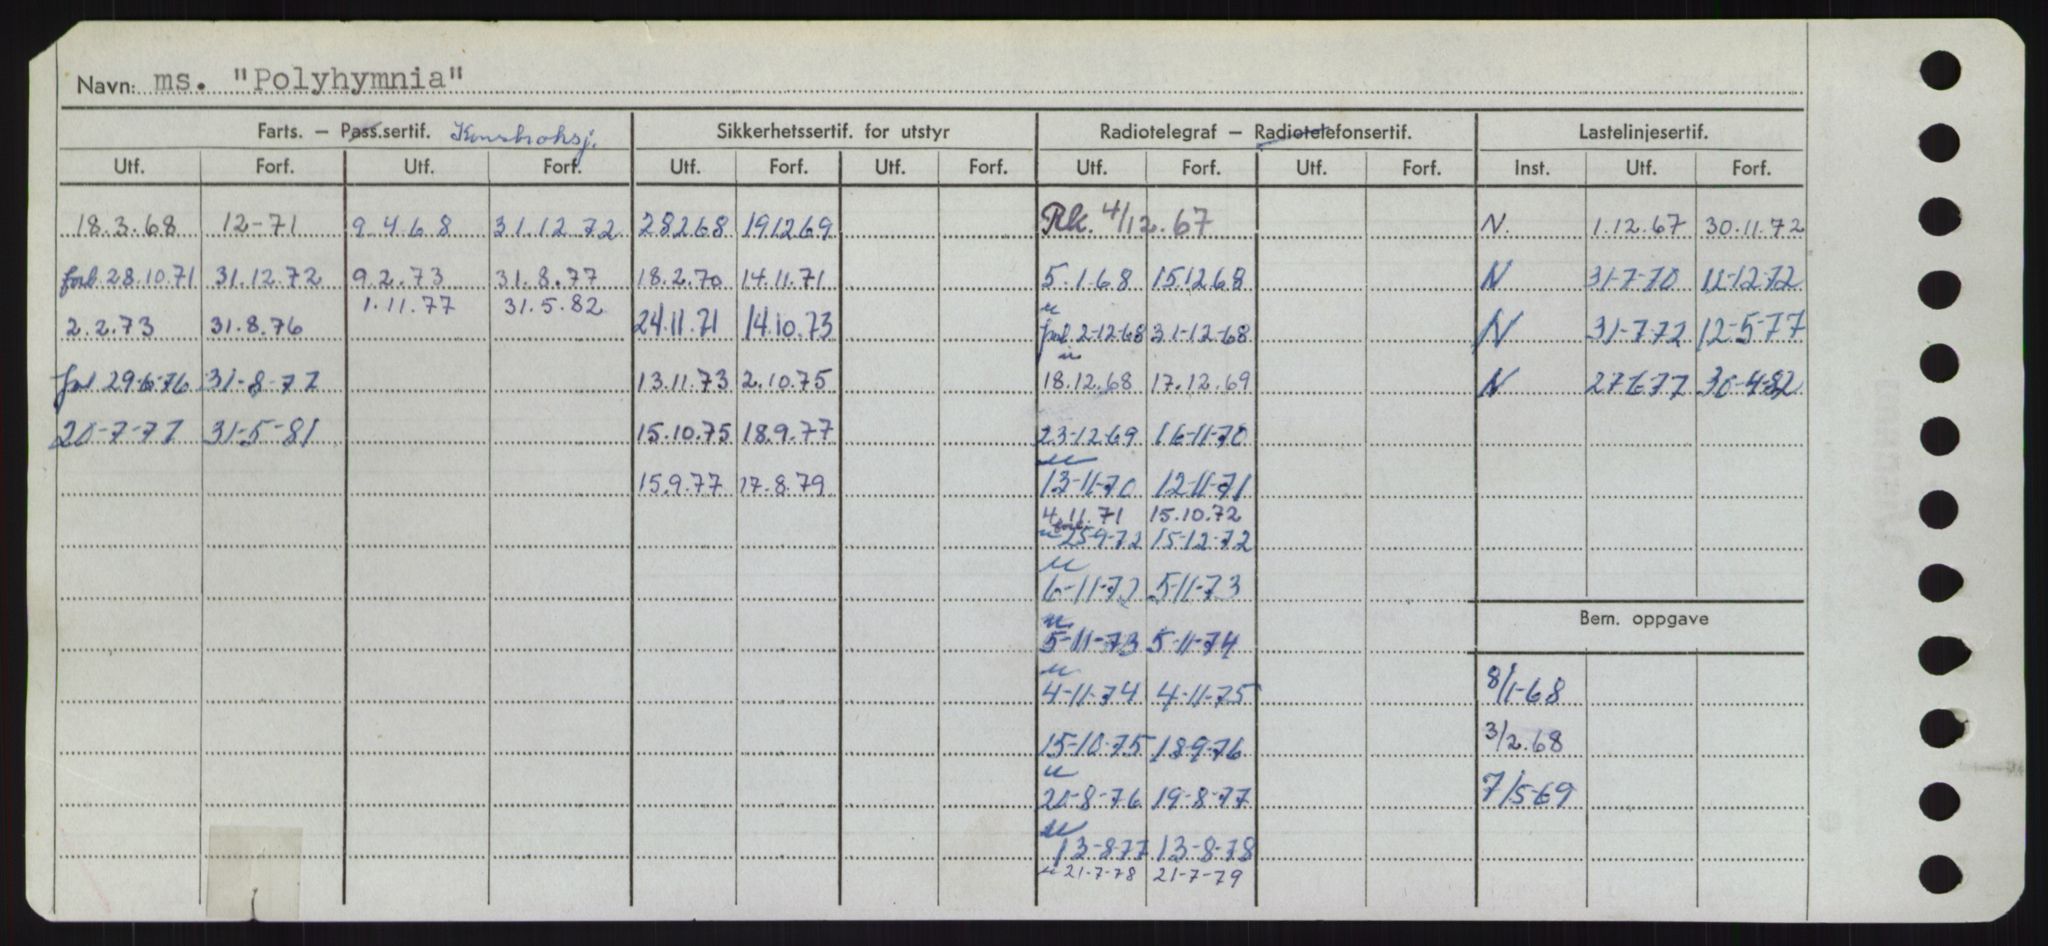 Navn: ms. "Polyhymnia"
Farts. – Pass.sertif. Sikkerhetssertif. for utstyr Radiotelegraf – Radiotelefonsertif. Lastelinjesertif.
Utf. Forf. Utf. Forf. Utf. Forf. Utf. Forf. Utf. Forf. Utf. Forf. Inst. Utf. Forf.
18.3.68 12-71 9.4.68 31.12.72 28268 191269 Rk. 4/12.67 N. 1.12.67 30.11.72
forl. 28.10.71 31.12.72 9.2.73 31.8.77 18.2.70 14.11.71 5.1.68 15.12.68 N 31-7-70 11-12-72
1.11.77 31.5.82
2.2.73 31.8.76 24.11.71 14.10.73 forl 2-12-68 31-12-68 N 31-7-72 12-5-77
forl 29-6-76 31-8-77 13.11.73 2.10.75 18.12.68 17.12.69 N 27-6-77 30-4-82
20-7-77 31-5-81 15.10.75 18.9.77 23-12-69 16-11-70
15.9.77 17.8.79 13-11-70 12-11-71
4.11.71 15.10.72
25-9-72 15-12-72
6-11-72 5-11-73
Bem. oppgave
5-11-73 5-11-74
4-11-74 4-11-75 8/1-68
15-10-75 18-9-76 3/2.68
20-8-76 19-8-77 7/5-69
13-8-77 13-8-78
21-7-78 21-7-79